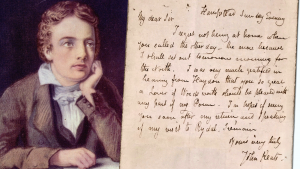 My dear Sir Hampstead Sunday Evening
I regret not being at home when
you called the other day - the more because
I shall set out tomorrow morning for
the North. I was very much gratified in
hearing from Haydon that you so great
a Lover of Wordsworth should be pleased with
any part of my Poem. In hopes of seeing
you soon after my return and speaking
of my visit to Rydal. I remain
Yours very truly
John Keats -